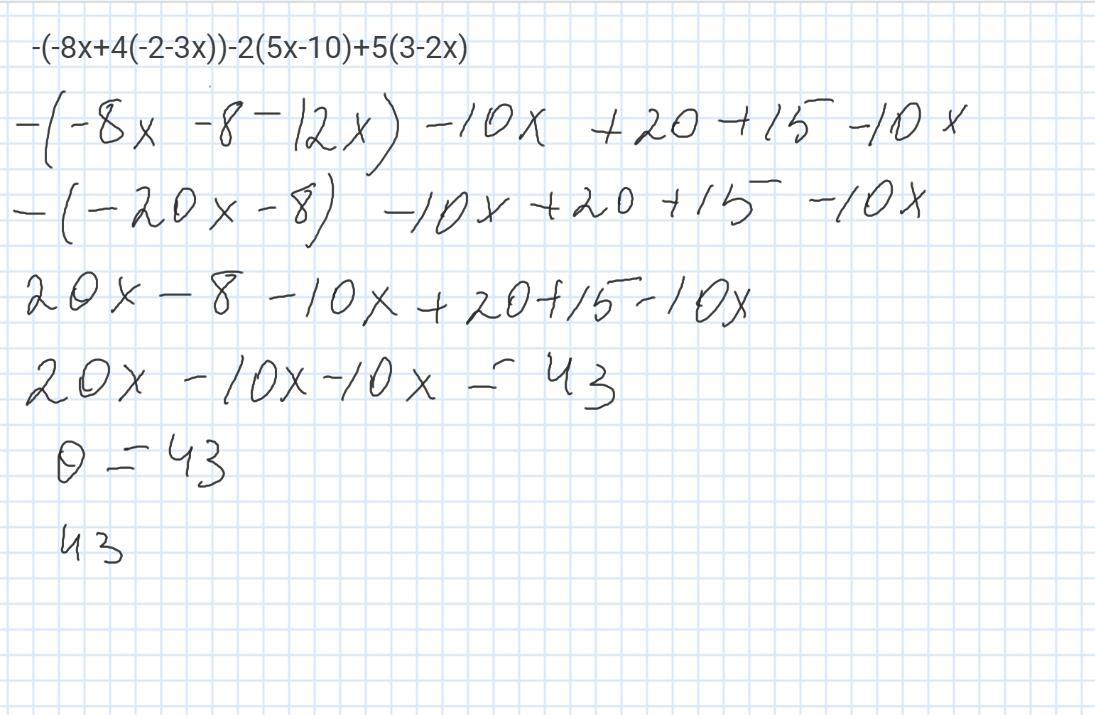 -(-8x+4(-2-3x))-2(5x-10)+5(3-2x)
-(-8x -8-12x) -10x +20+15-10x
-(-20x-8) -10x+20+15-10x
20x-8-10x+20+15-10x
20x-10x-10x=43
0=43
43